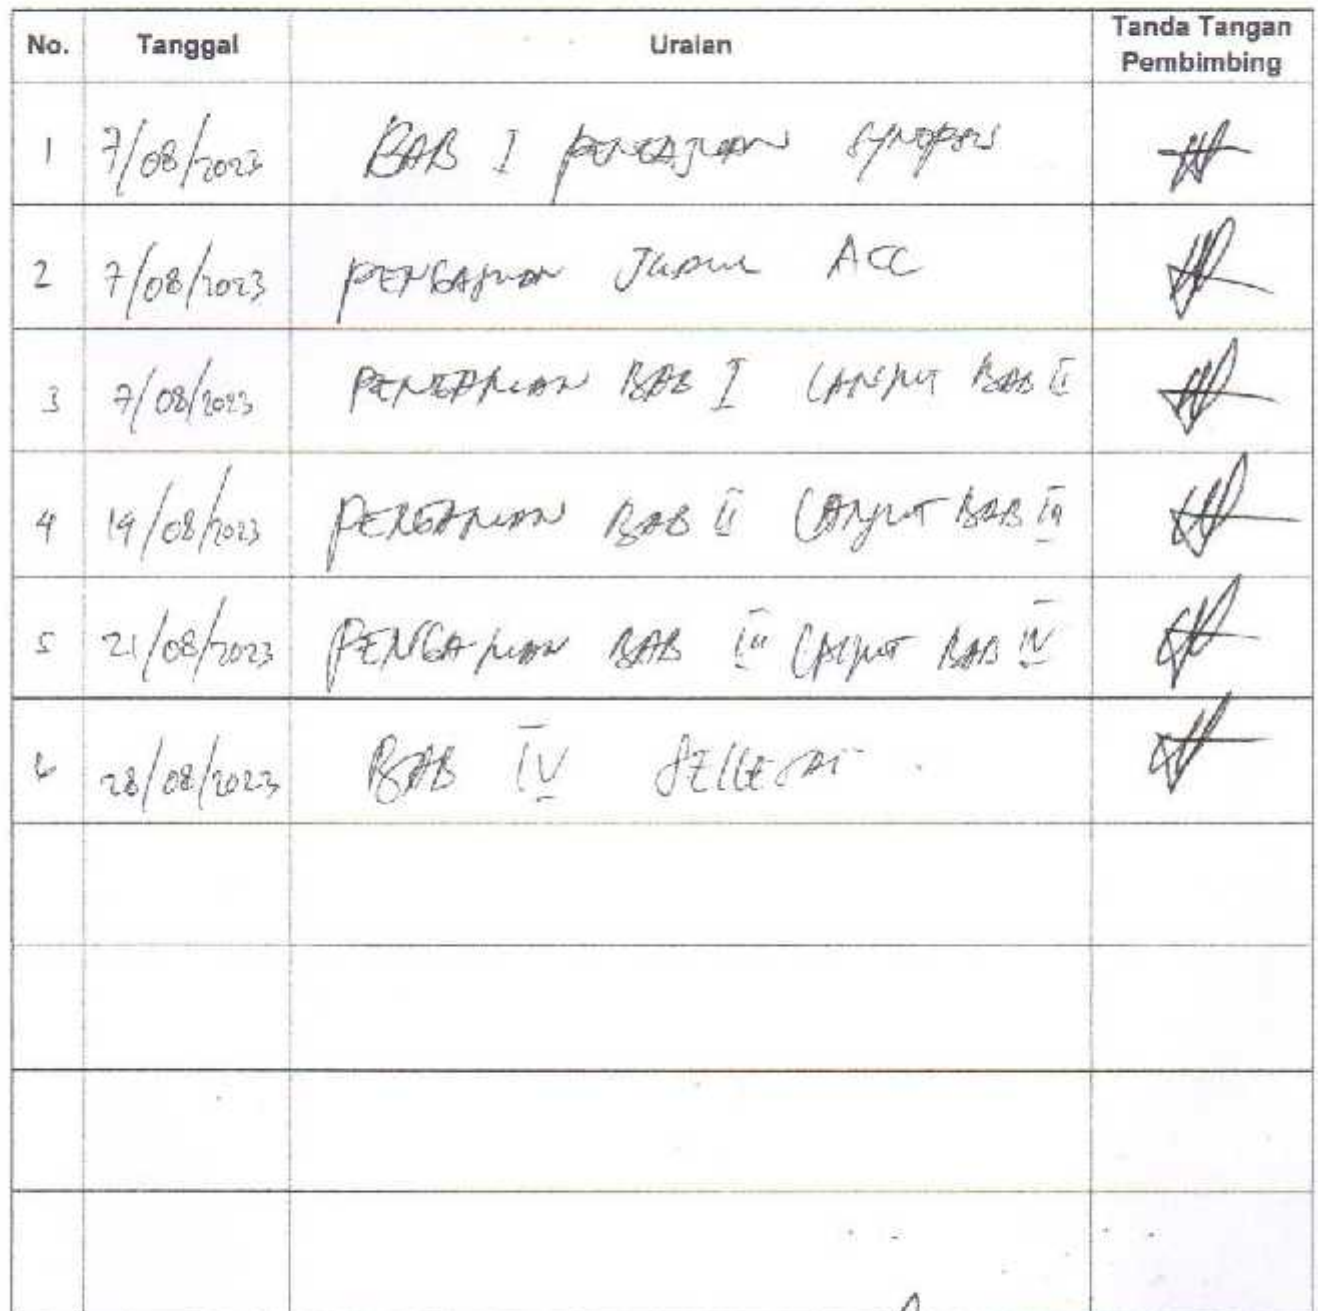 No. Tanggal Uraian Tanda Tangan Pembimbing
1 7/08/2023 BAB I PENGAJUAN SYNOPSIS
2 7/08/2023 PENGAJUAN JUDUL ACC
3 7/08/2023 PENGAJUAN BAB I LANJUT BAB II
4 14/08/2023 PENGAJUAN BAB II LANJUT BAB III
5 21/08/2023 PENGAJUAN BAB III LANJUT BAB IV
6 28/08/2023 BAB IV SELLESAI